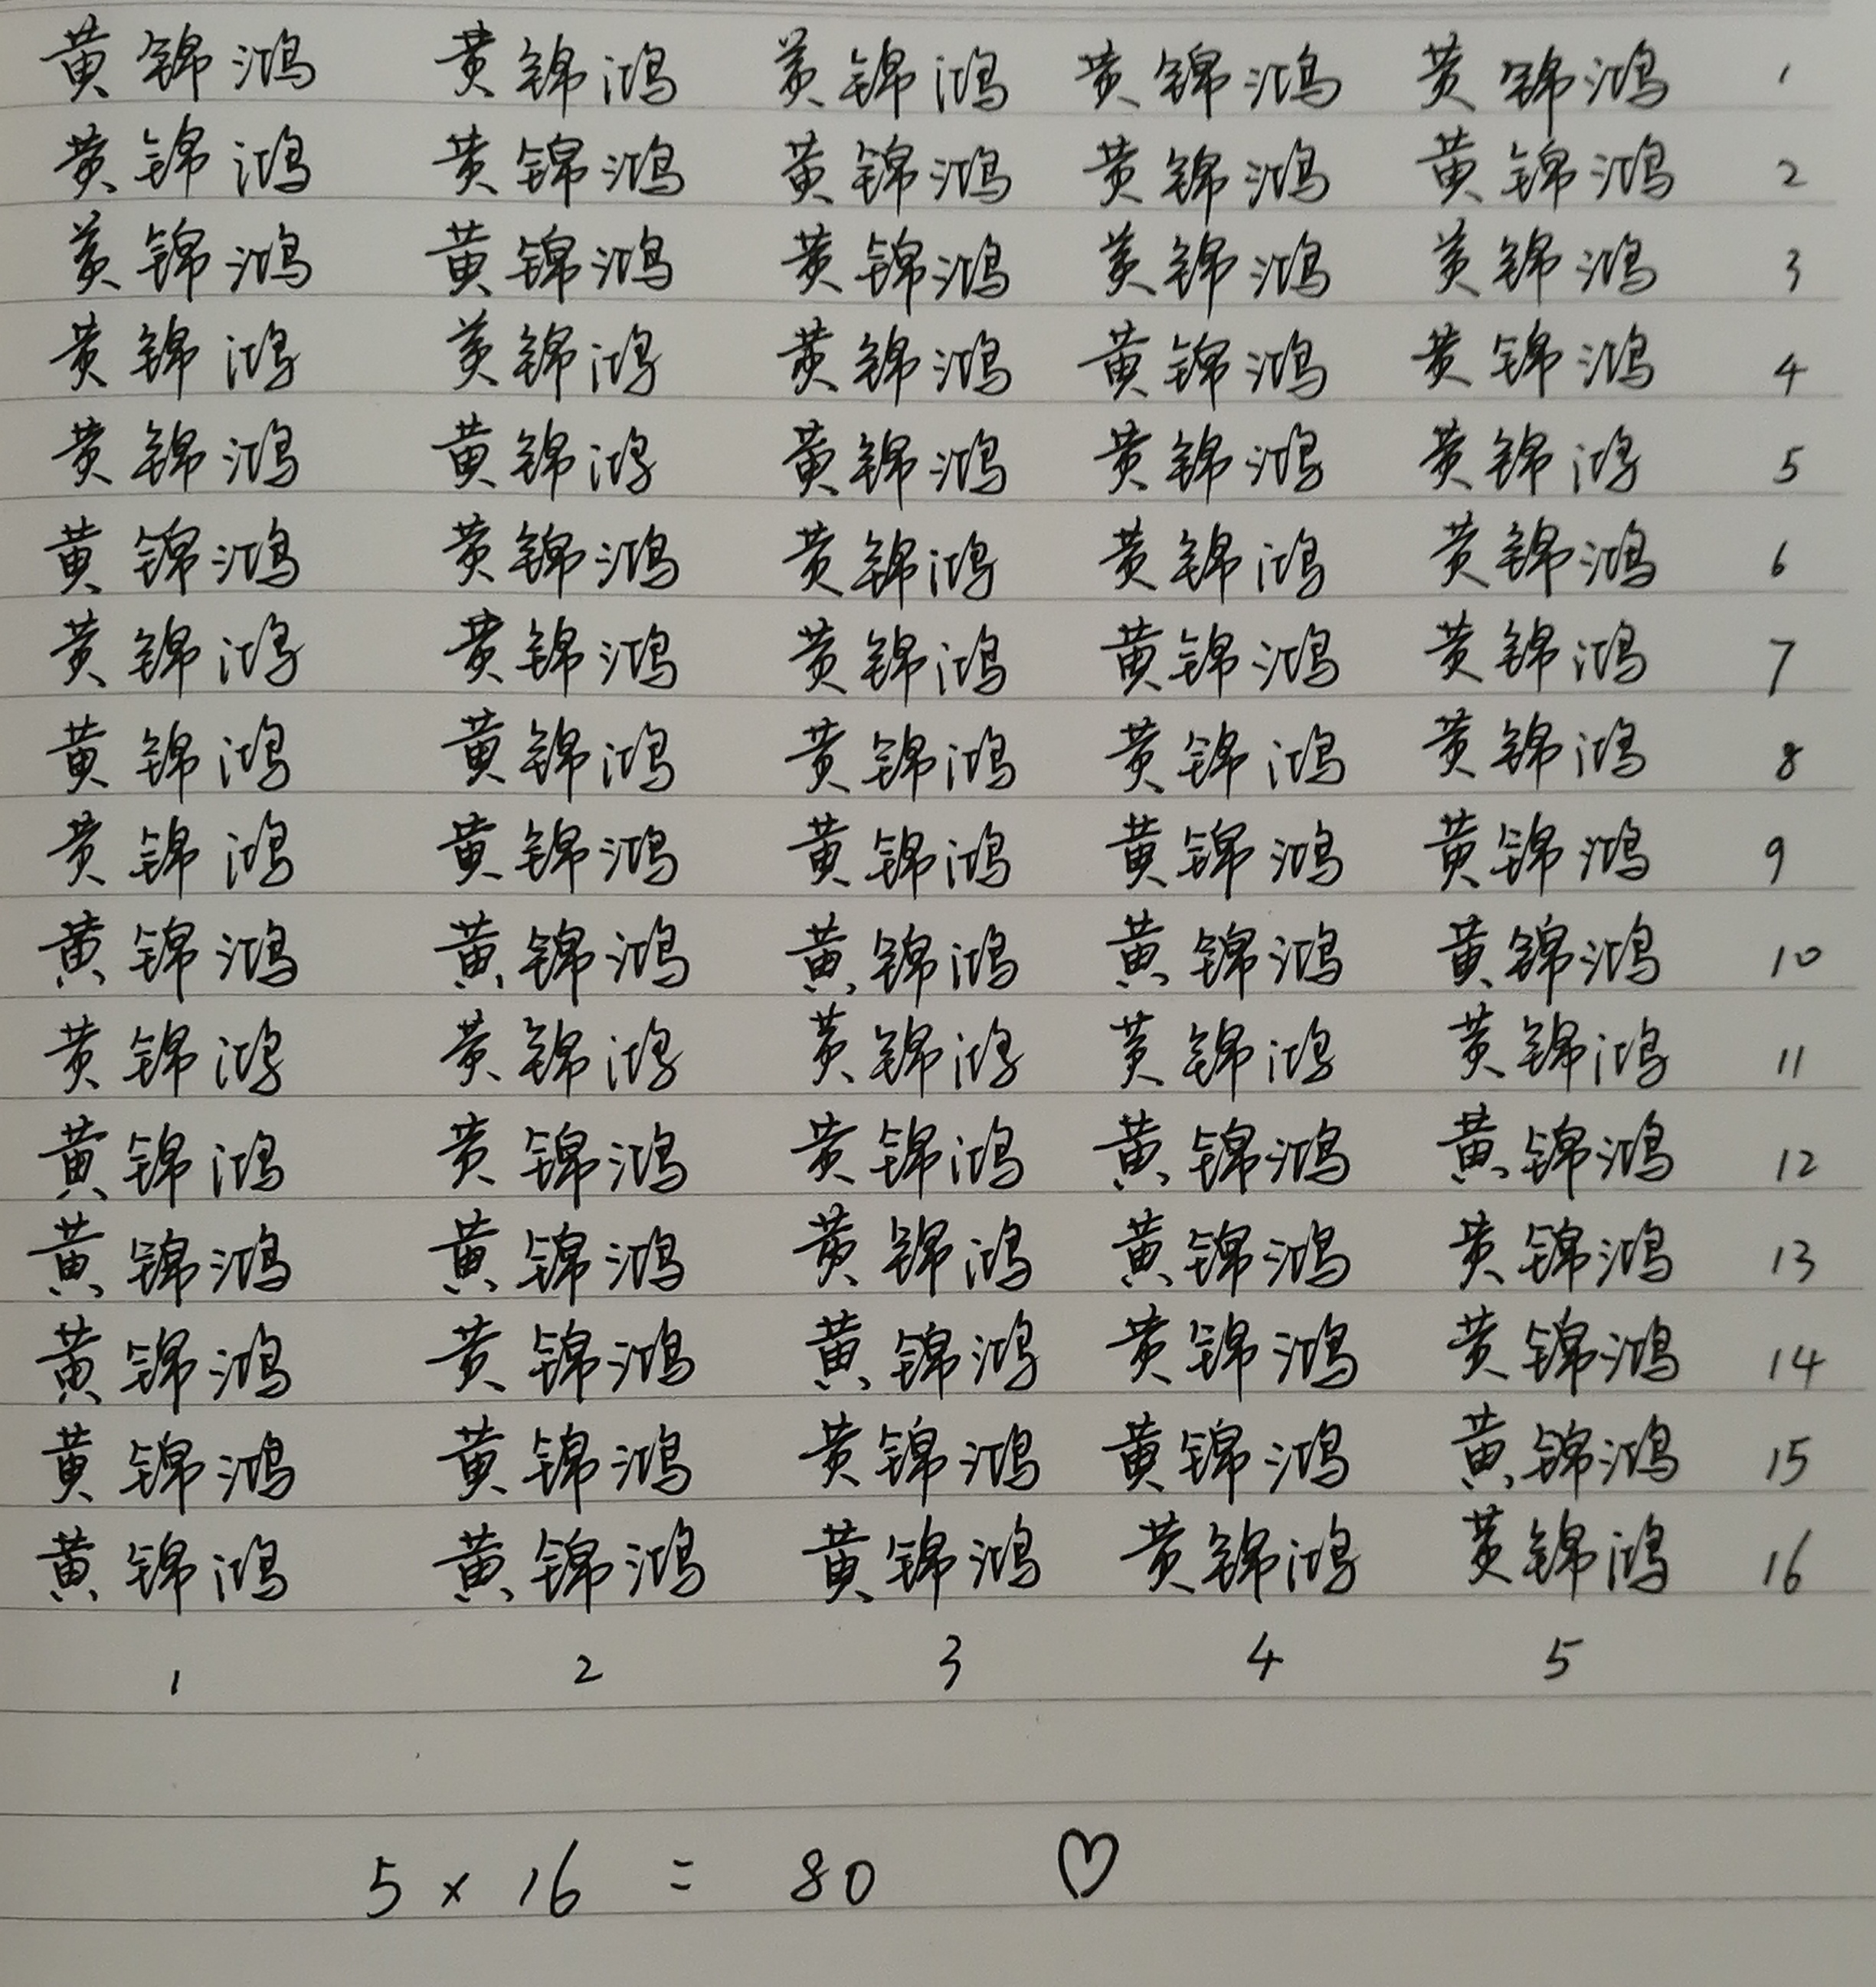 黄锦鸿 黄锦鸿 黄锦鸿 黄锦鸿 黄锦鸿 1
黄锦鸿 黄锦鸿 黄锦鸿 黄锦鸿 黄锦鸿 2
黄锦鸿 黄锦鸿 黄锦鸿 黄锦鸿 黄锦鸿 3
黄锦鸿 黄锦鸿 黄锦鸿 黄锦鸿 黄锦鸿 4
黄锦鸿 黄锦鸿 黄锦鸿 黄锦鸿 黄锦鸿 5
黄锦鸿 黄锦鸿 黄锦鸿 黄锦鸿 黄锦鸿 6
黄锦鸿 黄锦鸿 黄锦鸿 黄锦鸿 黄锦鸿 7
黄锦鸿 黄锦鸿 黄锦鸿 黄锦鸿 黄锦鸿 8
黄锦鸿 黄锦鸿 黄锦鸿 黄锦鸿 黄锦鸿 9
黄锦鸿 黄锦鸿 黄锦鸿 黄锦鸿 黄锦鸿 10
黄锦鸿 黄锦鸿 黄锦鸿 黄锦鸿 黄锦鸿 11
黄锦鸿 黄锦鸿 黄锦鸿 黄锦鸿 黄锦鸿 12
黄锦鸿 黄锦鸿 黄锦鸿 黄锦鸿 黄锦鸿 13
黄锦鸿 黄锦鸿 黄锦鸿 黄锦鸿 黄锦鸿 14
黄锦鸿 黄锦鸿 黄锦鸿 黄锦鸿 黄锦鸿 15
黄锦鸿 黄锦鸿 黄锦鸿 黄锦鸿 黄锦鸿 16
1 2 3 4 5
5 × 16 = 80 ♡